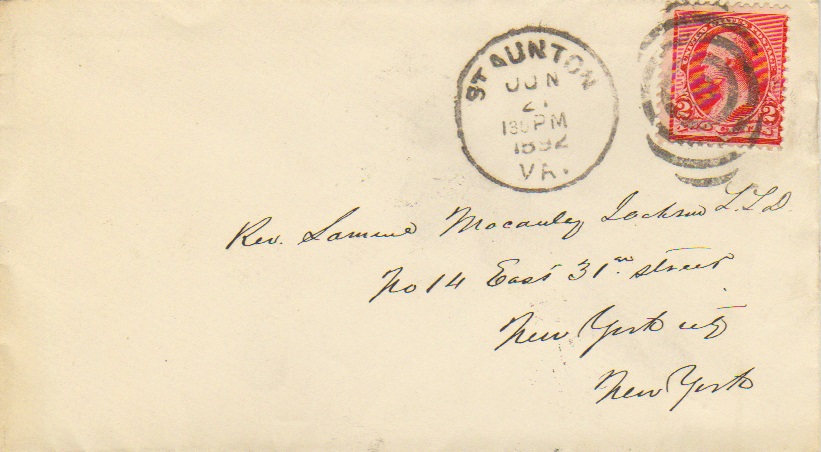 STAUNTON
JUN
21
130PM
1892
VA.
UNITED STATES POSTAGE
2 2
Rev. Samuel Macauley Jackson L.L.D.
No 14 East 31st street
New York city
New York